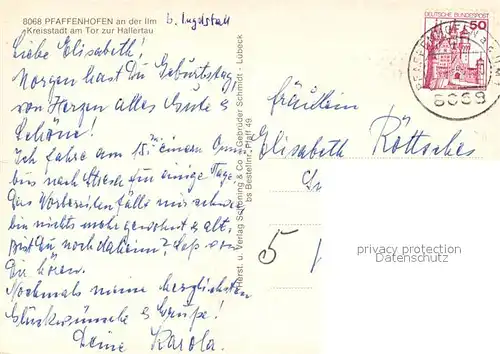 8068 PFAFFENHOFEN an der Ilm
Kreisstadt am Tor zur Hallertau
b. Ingolstadt
Liebe Elisabeth!
Morgen hast Du Geburtstag,
von Herzen alles Gute &
Schöne!
Ich fahre am 15. einem
bis nach Stresa für einige Tage
Das Vorbereiten fällt mir schwer
bin nichts mehr gewohnt & alt.
Bist Du noch daheim? Laß von
Dir hören.
Nochmals meine herzlichsten
Glückwünsche & Grüße!
Deine Karola.
Herst. u. Verlag Schöning & Co + Gebrüder Schmidt - Lübeck
bs Bestellnr. Pfaff 49
DEUTSCHE BUNDESPOST
50
PFAFFENHOFEN a d
8069
Fräulein
Elisabeth Röttsches
5
privacy protection
watermark